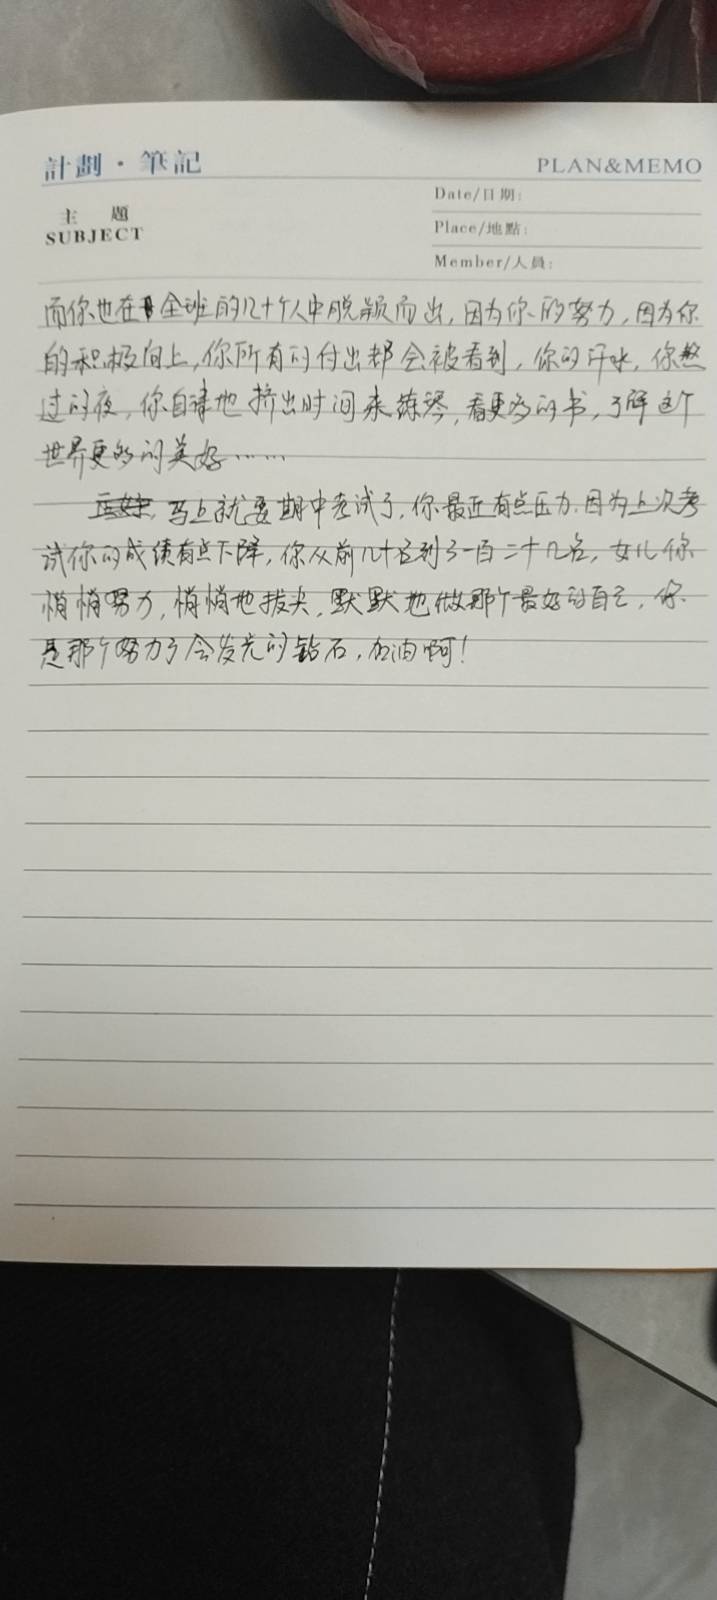 計劃·筆記
PLAN&MEMO
主 題
SUBJECT
Date/日期:
Place/地點:
Member/人員:
而你也在全班的几十个人中脱颖而出,因为你的努力,因为你
的积极向上,你所有的付出都会被看到,你的汗水,你熬
过的夜,你自律地挤出时间来练琴,看更多的书,了解这个
世界更多的美好……
马上就要期中考试了,你最近有点压力.因为上次考
试你的成绩有点下降,你从前几十名到了一百二十几名,女儿你
悄悄努力,悄悄地拔尖,默默地做那个最好的自己,你
是那个努力了会发光的钻石,加油啊!